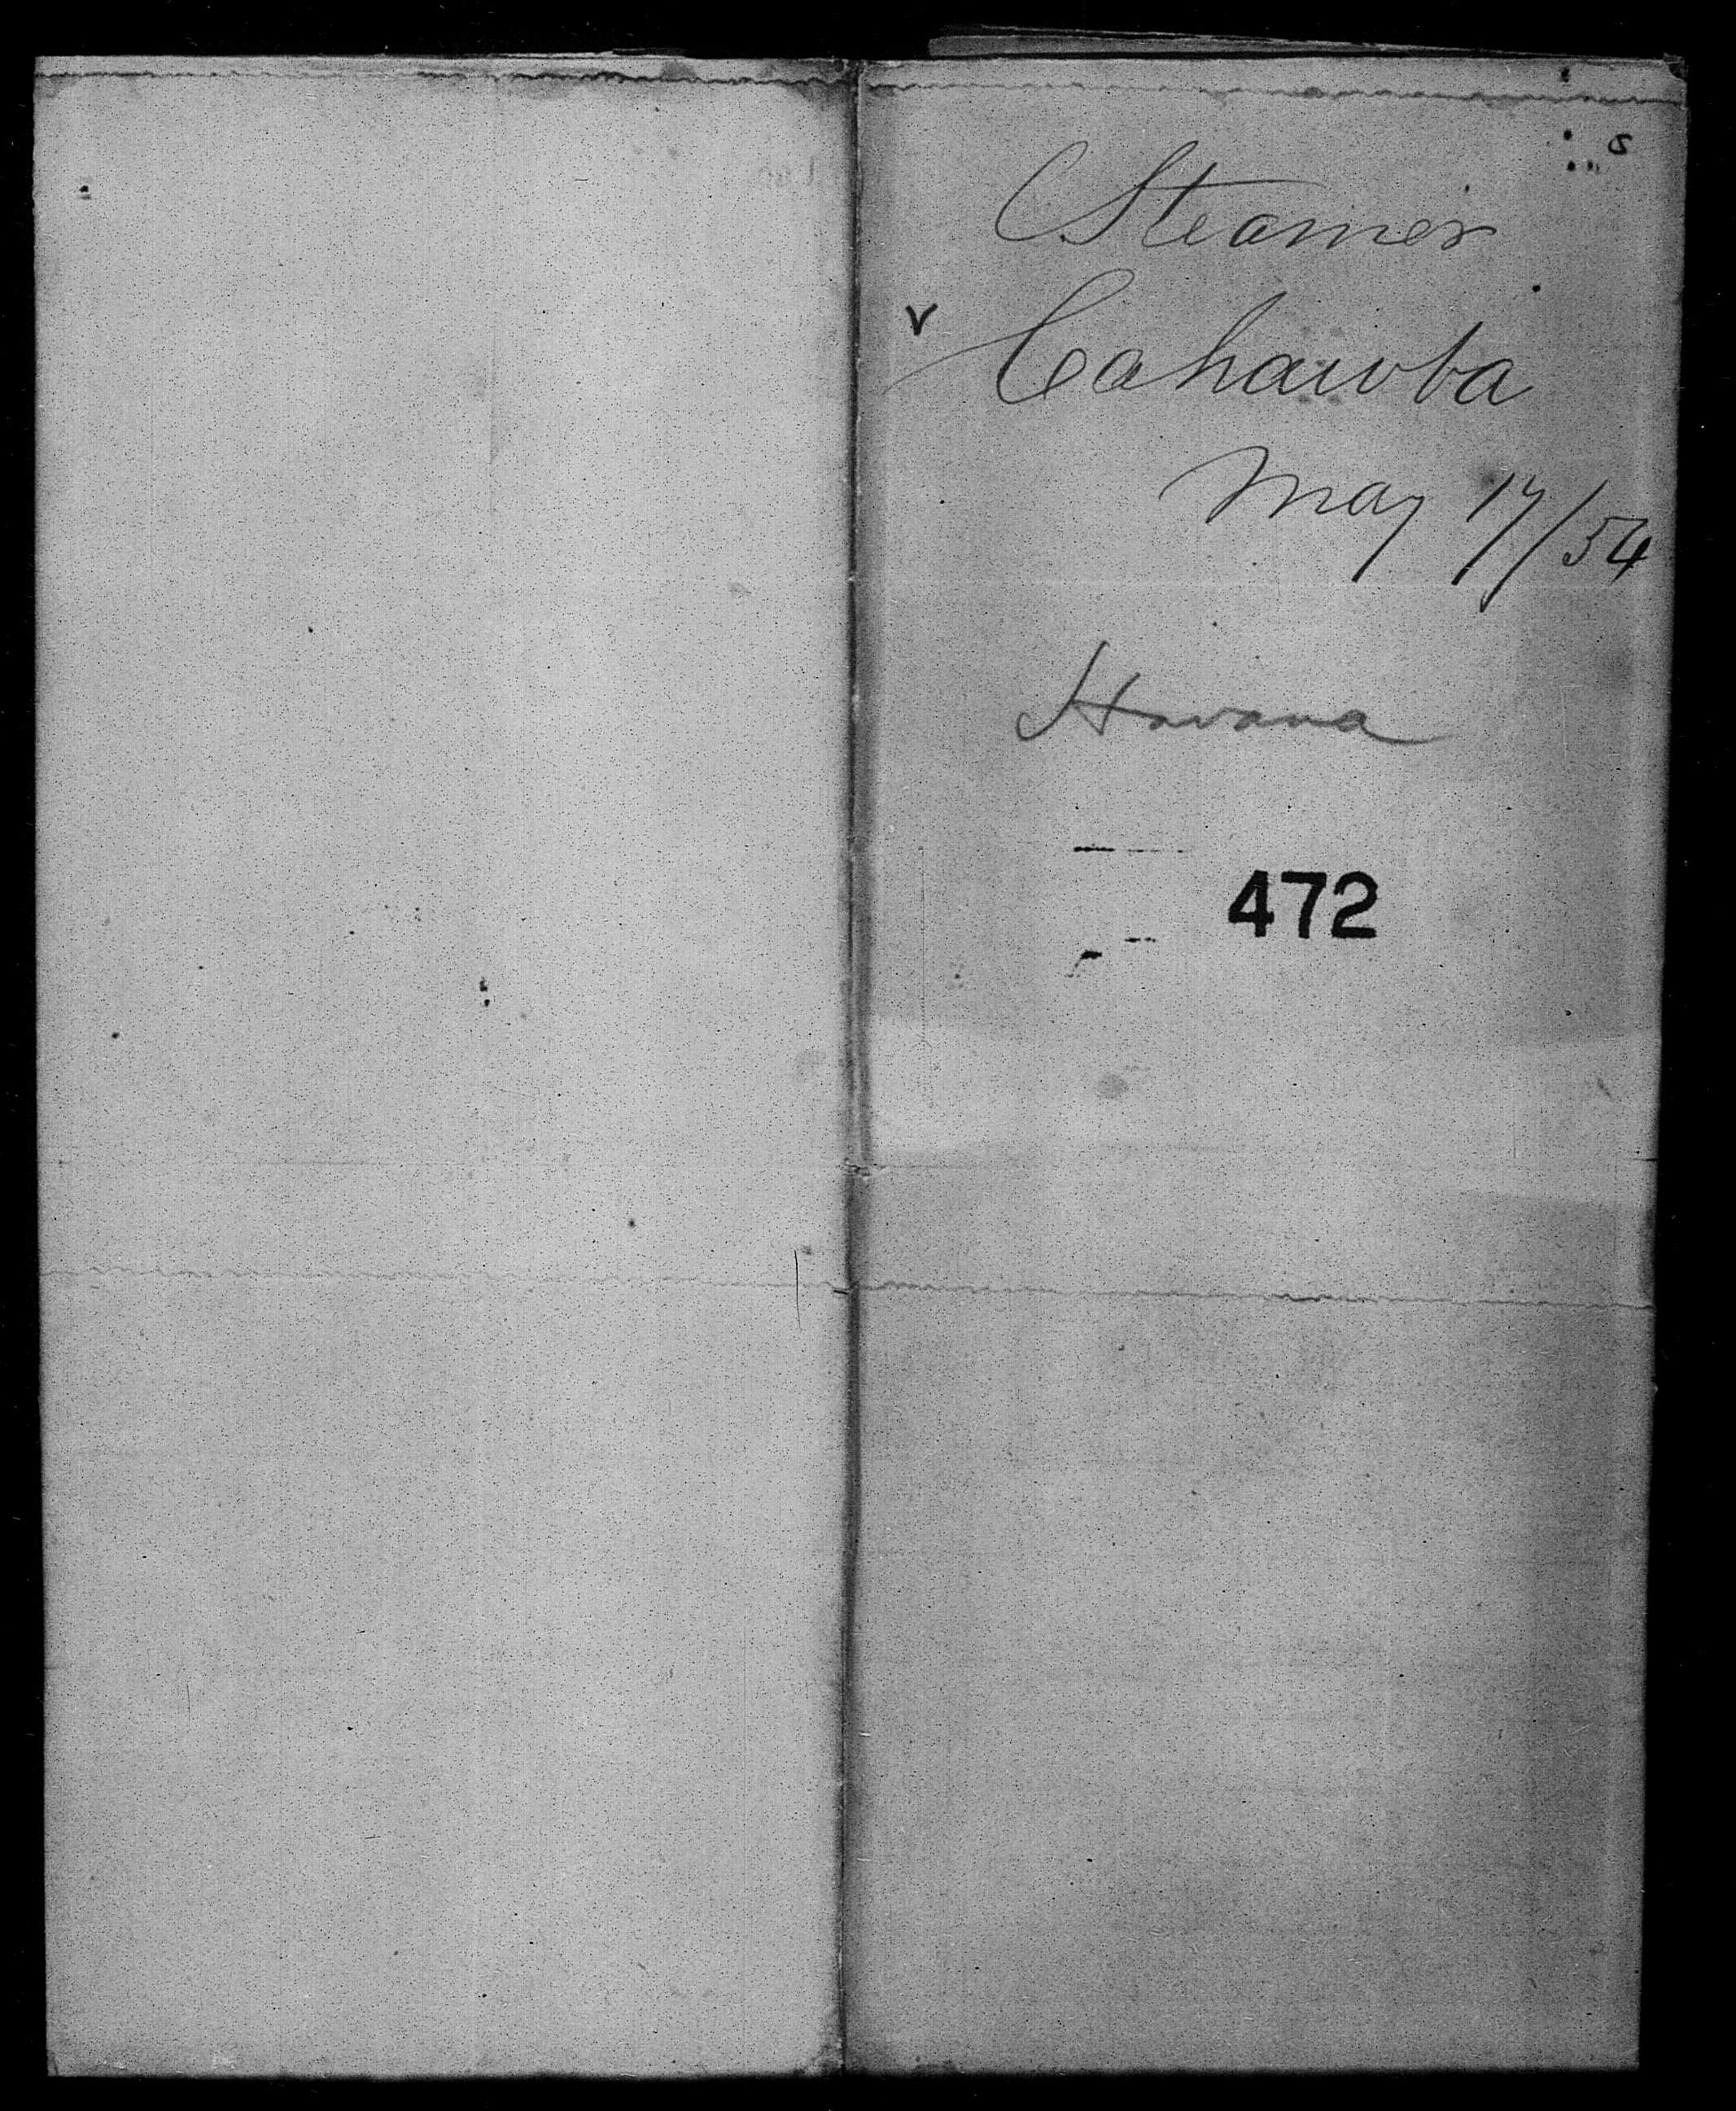 Steamer
Cahawba
May 17/54
Havana
472